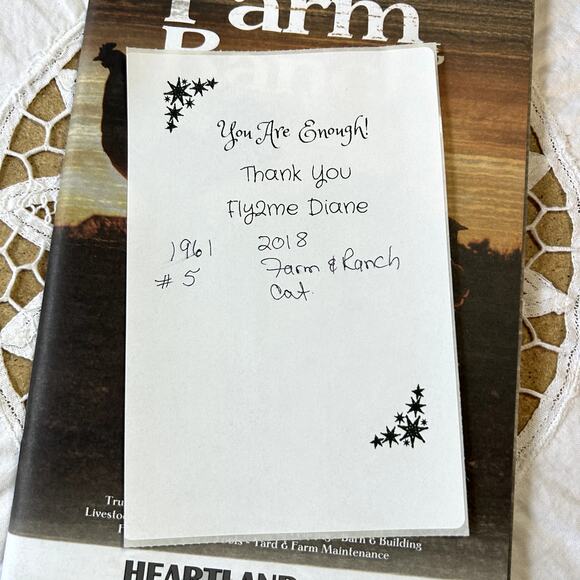 Farm
You Are Enough!
Thank You
Fly2me Diane
1961 2018
# 5 Farm & Ranch
Cat.
Tru
Livestoc
Barn & Building
Yard & Farm Maintenance
HEARTLAND